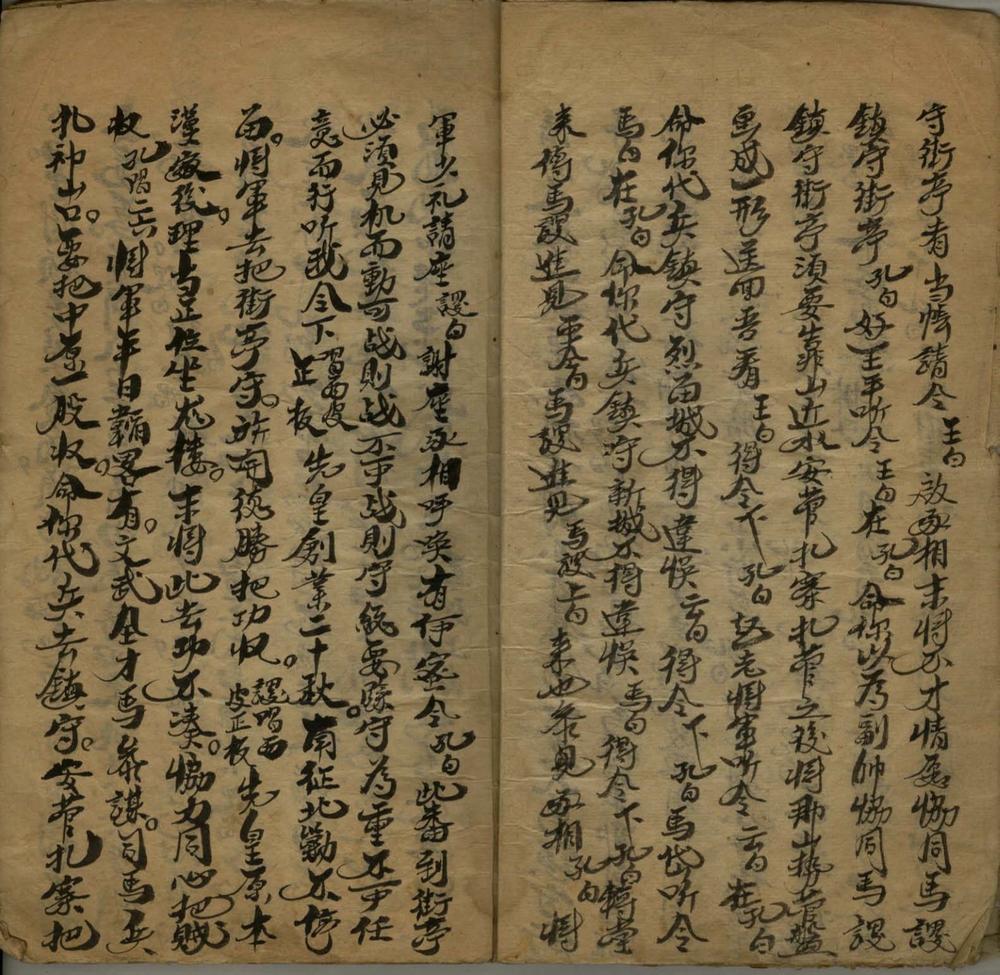 守街亭者当情請令王白啟丞相末将不才情愿恊同馬謖
鎮守街亭孔白好王平听令王白在孔白命你以為副帅恊同馬謖
鎮守街亭須要靠山近水安营扎寨扎营之後将那山势营盤
画成一形送回吾看王白得令下孔白赵老将軍听令云白在孔白
命你代兵鎮守烈柳城不得違悞云白得令下孔白馬岱听令
馬白在孔白命你代兵鎮守新城不得違悞馬白得令下孔白轉堂
来傳馬謖進見平令白馬謖進見馬謖上白来也参見丞相孔白将
軍少礼請座謖白謝座丞相呼喚有何密令孔白此番到街亭
必須見机而動可战則战不可战則守統要緊守為重不可任
意而行听我令下唱西皮正板先皇創業二十秋南征北勦不停
留。将軍去把街亭守。旂開得勝把功収。謖唱西皮正板先皇原本
漢嫩後理当正位坐龙楼。末将此去功不湊。恊力同心把贼
収孔唱二六将軍平日韜畧有。文武全才馬家謀。司馬兵
扎祁山口。要把中原一股収命你代兵去鎮守。安营扎寨把